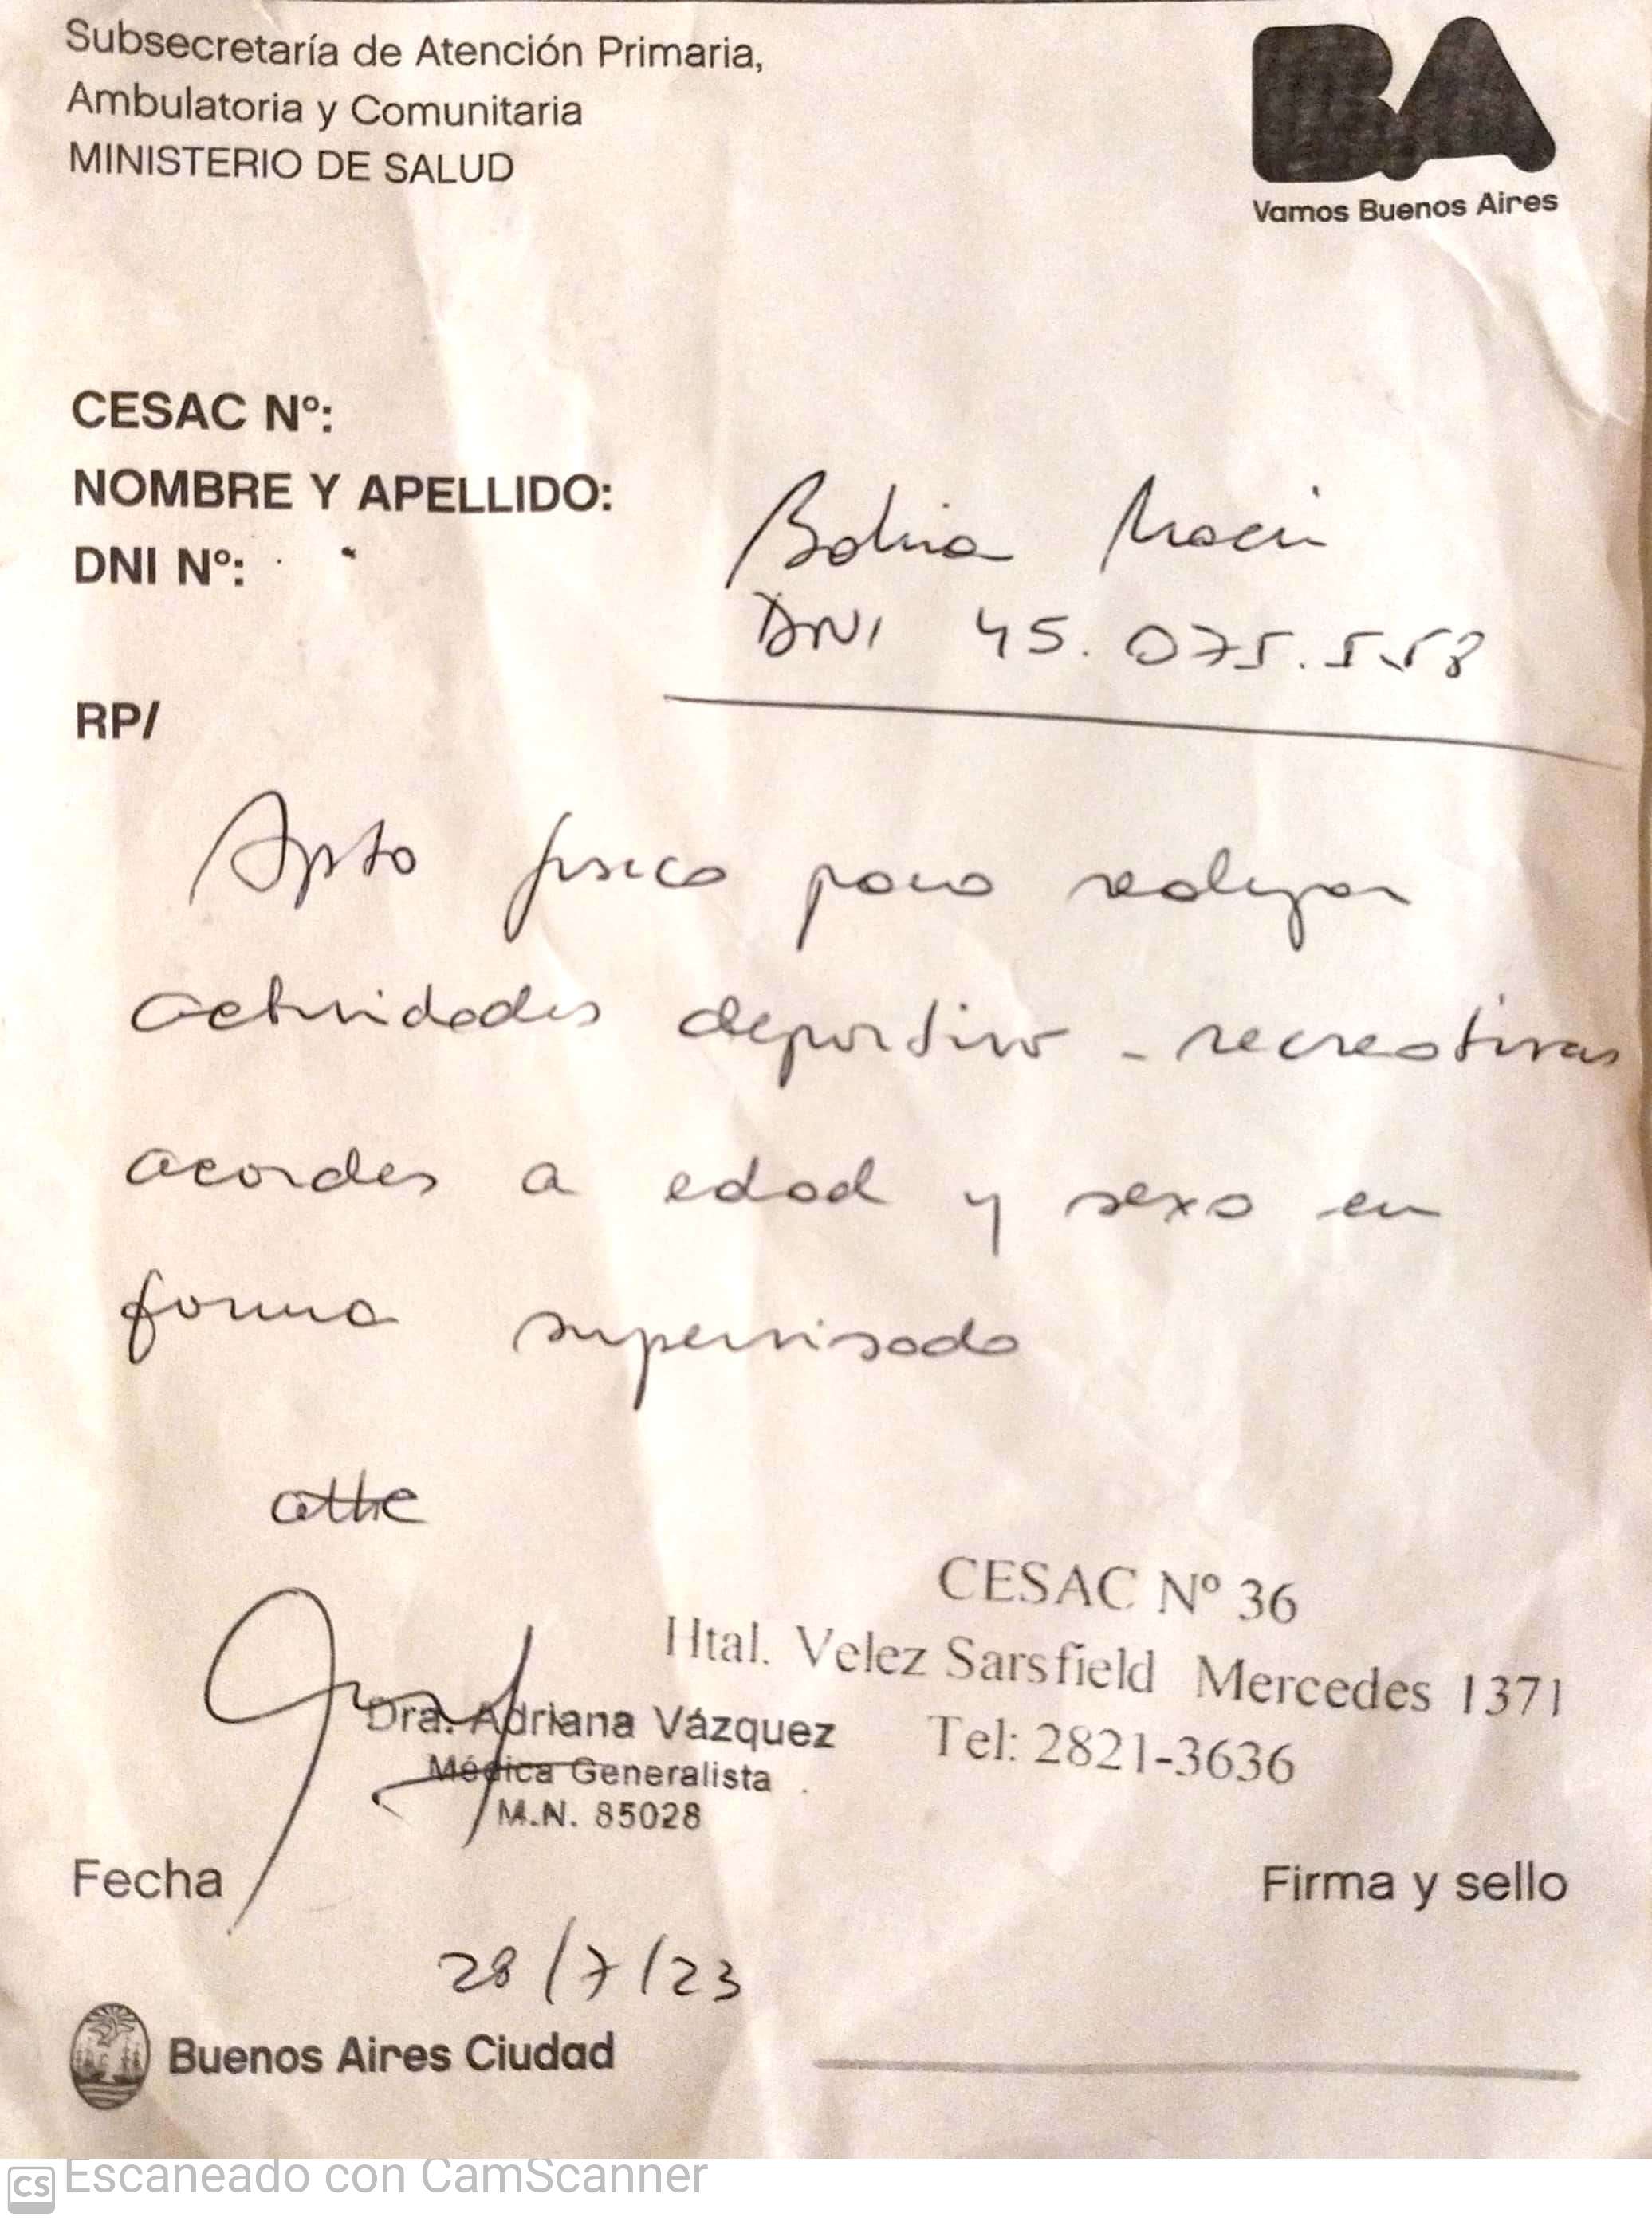 Subsecretaría de Atención Primaria,
Ambulatoria y Comunitaria
MINISTERIO DE SALUD
BA
Vamos Buenos Aires
CESAC Nº:
NOMBRE Y APELLIDO:
DNI Nº:
DNI 45.075.558
RP/
Apto fisico para realizar
actividades deportivo - recreativas
acordes a edad y sexo en
forma supervisada
atte
CESAC Nº 36
Htal. Velez Sarsfield Mercedes 1371
Tel: 2821-3636
Dra. Adriana Vázquez
Médica Generalista
M.N. 85028
Fecha
Firma y sello
28/7/23
Buenos Aires Ciudad
CS Escaneado con CamScanner